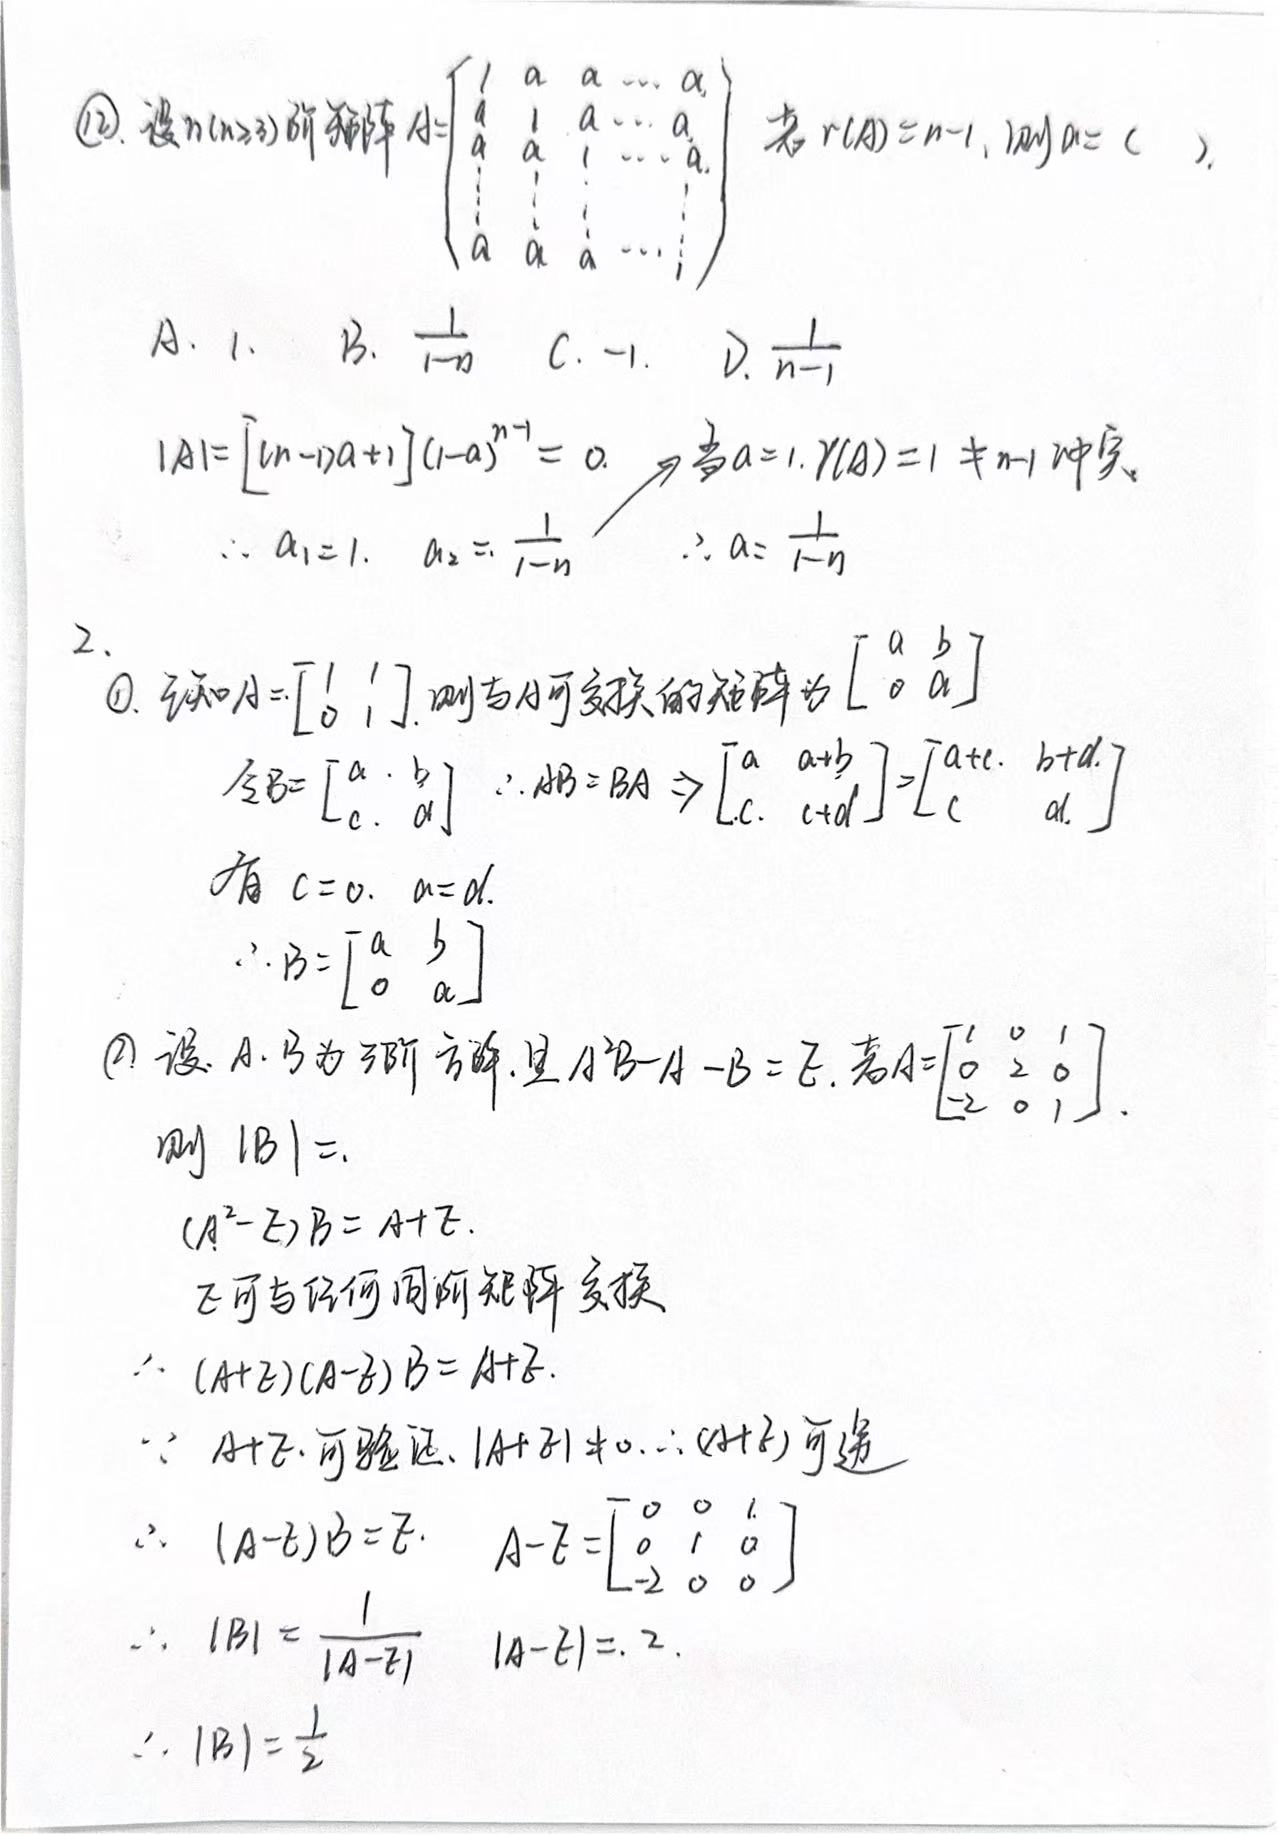 ⑫. 设n(n≥3)阶矩阵A=[1 a a … a; a 1 a … a; a a 1 … a; ⋮ ⋮ ⋮ ⋮; a a a … 1] 若r(A)=n-1, 则a=( ).
A. 1. B. 1/(1-n) C. -1. D. 1/(n-1)
|A|=[(n-1)a+1](1-a)^(n-1)=0. ↗当a=1. r(A)=1≠n-1冲突.
∴ a₁=1. a₂=1/(1-n) ∴ a=1/(1-n)
2.
①. 已知A=[1 1; 0 1]. 则与A可交换的矩阵为[a b; 0 a]
令B=[a b; c d] ∴AB=BA ⇒ [a a+b; c c+d]=[a+c b+d; c d]
有 c=0. a=d.
∴B=[a b; 0 a]
② 设A.B为三阶方阵.且A²B-A-B=E.若A=[1 0 1; 0 2 0; -2 0 1].
则|B|=.
(A²-E)B=A+E.
E可与任何同阶矩阵交换
∴ (A+E)(A-E)B=A+E.
∵ A+E.可验证.|A+E|≠0.∴(A+E)可逆
∴ (A-E)B=E. A-E=[0 0 1; 0 1 0; -2 0 0]
∴ |B|=1/|A-E| |A-E|=.2.
∴ |B|=1/2